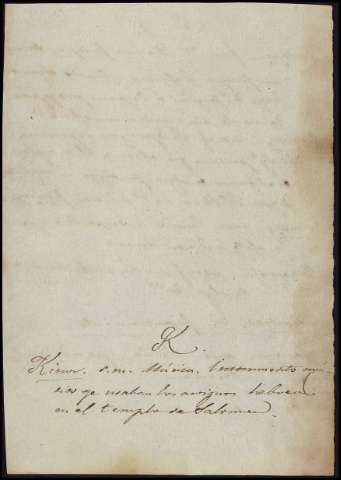 K.
Kinor. s.m. Música. Instrumento mú-
sico qe usaban los antiguos hebreos
en el templo de Salomon.